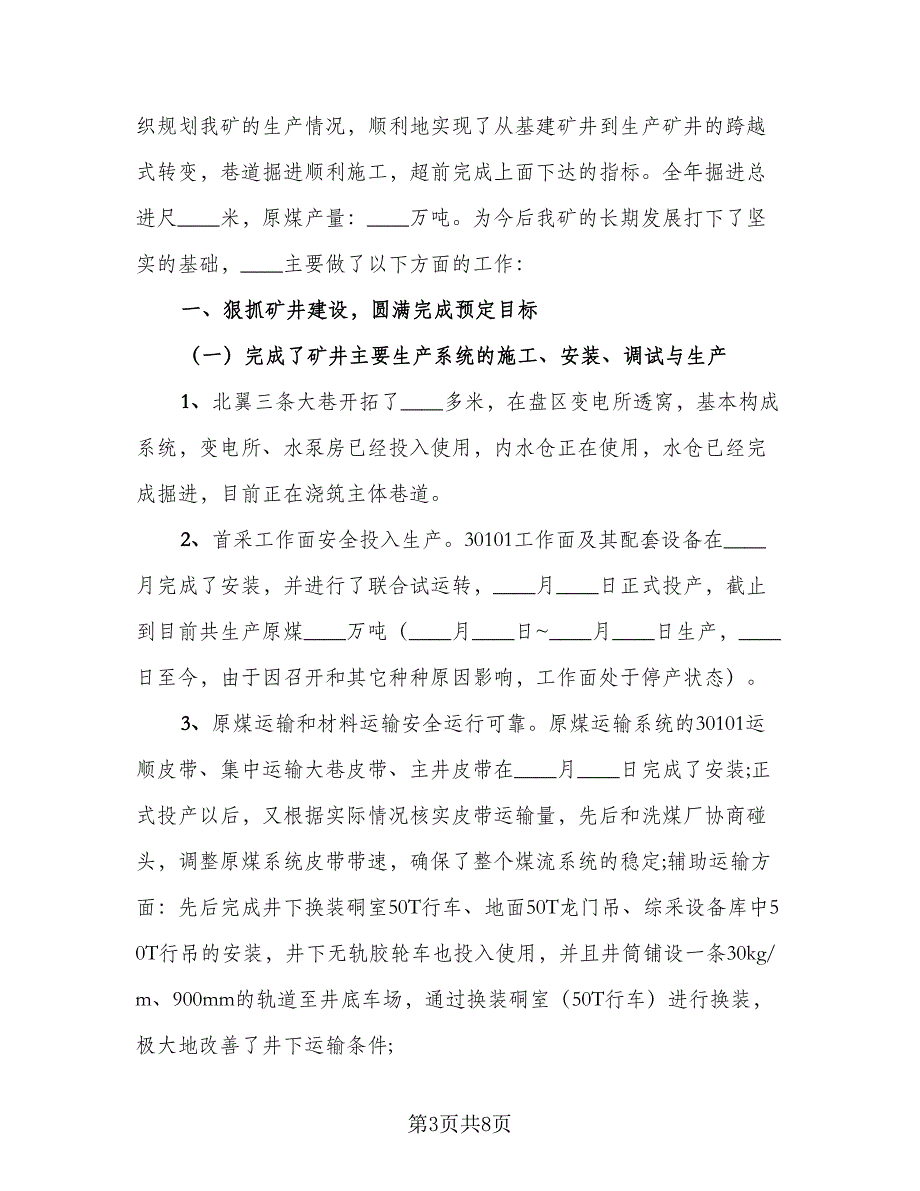 织规划我矿的生产情况，顺利地实现了从基建矿井到生产矿井的跨越
式转变，巷道掘进顺利施工，超前完成上面下达的指标。全年掘进总
进尺____米，原煤产量：____万吨。为今后我矿的长期发展打下了坚
实的基础，____主要做了以下方面的工作：
一、狠抓矿井建设，圆满完成预定目标
（一）完成了矿井主要生产系统的施工、安装、调试与生产
1、北翼三条大巷开拓了____多米，在盘区变电所透窝，基本构成
系统，变电所、水泵房已经投入使用，内水仓正在使用，水仓已经完
成掘进，目前正在浇筑主体巷道。
2、首采工作面安全投入生产。30101工作面及其配套设备在____
月完成了安装，并进行了联合试运转，____月____日正式投产，截止
到目前共生产原煤____万吨（____月____日~____月____日生产，____
日至今，由于因召开和其它种种原因影响，工作面处于停产状态）。
3、原煤运输和材料运输安全运行可靠。原煤运输系统的30101运
顺皮带、集中运输大巷皮带、主井皮带在____月____日完成了安装;正
式投产以后，又根据实际情况核实皮带运输量，先后和洗煤厂协商碰
头，调整原煤系统皮带带速，确保了整个煤流系统的稳定;辅助运输方
面：先后完成井下换装硐室50T行车、地面50T龙门吊、综采设备库中5
0T行吊的安装，井下无轨胶轮车也投入使用，并且井筒铺设一条30kg/
m、900mm的轨道至井底车场，通过换装硐室（50T行车）进行换装，
极大地改善了井下运输条件;
第3页共8页